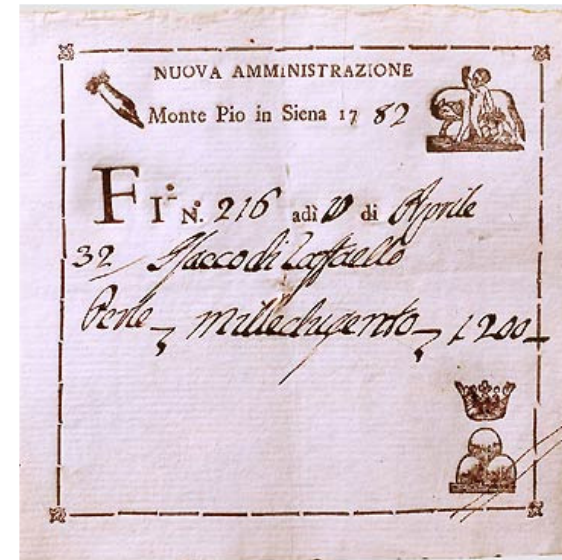 NUOVA AMMINISTRAZIONE
Monte Pio in Siena 17 82
FI. N. 216 adì di Aprile
32 Isacco di Raffaello
Perle milledugento 1200